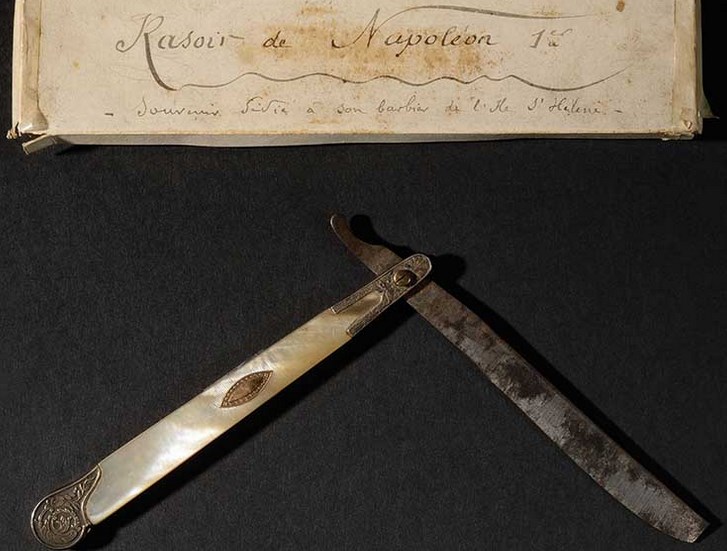 Rasoir de Napoléon 1er
- Souvenir à son barbier de l'Ile Ste Hélène -